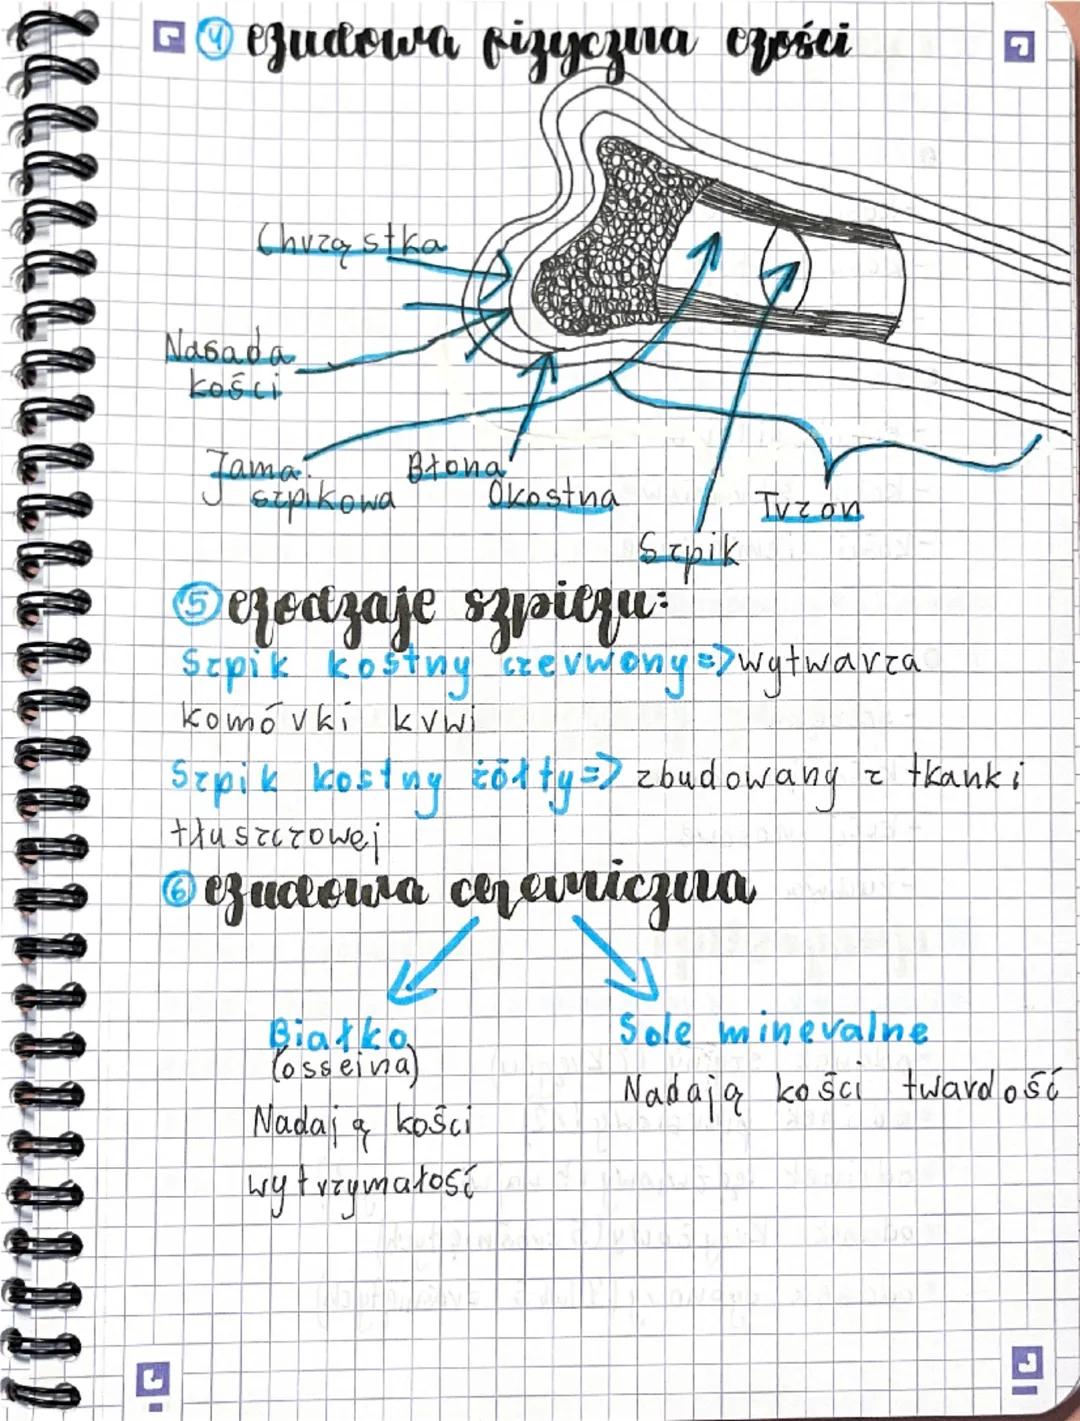 ④ Budowa fizyczna kości
Chrząstka
Nasada
kości
Jama
szpikowa
Błona
Okostna
Trzon
Szpik
⑤ Rodzaje szpiku:
Szpik kostny czerwony => wytwarza
komórki krwi
Szpik kostny żółty => zbudowany z tkanki
tłuszczowej
⑥ Budowa chemiczna
Białko
(osseina)
Nadają kości
wytrzymałość
Sole mineralne
Nadają kości twardość